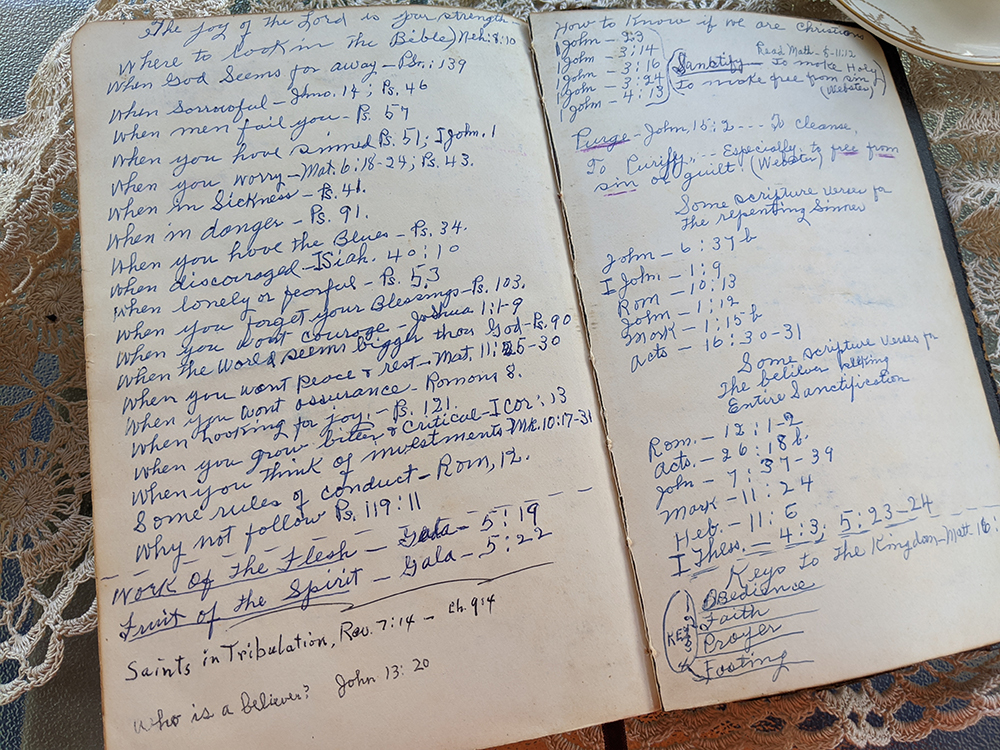 The joy of the Lord is your strength
Where to look in the Bible) Neh: 8:10
When God Seems far away - Psn: 139
When Sorrowful - Jhno. 14; Ps. 46
When men fail you - Ps. 57
When you have sinned Ps. 51; I John. 1
When you worry - Mat. 6:18-24; Ps. 43.
When in Sickness - Ps. 41.
When in danger - Ps. 91.
When you have the Blues - Ps. 34.
When discouraged - ISiah. 40:10
When lonely or fearful - Ps. 53
When you forget your Blessings - Ps. 103.
When you want courage - Joshua 1:1-9
When the World seems bigger than God - Ps. 90
When you want peace & rest - Mat. 11:25-30
When you want assurance - Romans 8.
When looking for joy. - Ps. 121
When you grow bitter & critical - I Cor: 13
When you think of investments Mk. 10:17-31
Some rules of conduct - Rom, 12.
Why not follow Ps. 119:11
Work Of The Flesh - Gala - 5:19
Fruit of the Spirit - Gala - 5:22
Saints in Tribulation, Rev. 7:14 - Ch. 9:4
Who is a believer? John 13:20
How to Know if we are Christians
1 John - 2:3
1 John - 3:14
1 John - 3:16
1 John - 3:24
1 John - 4:13
Read Math - 5-11:12
(Sanctify - To make Holy
To make free from sin
(Webster)
Purge - John, 15:2 --- To Cleanse,
To Purify, - - - Especially; to free from
sin or guilt. (Webster)
Some scripture verses for
The repenting Sinner
John - 6:37 b
I John - 1:9
Rom - 10:13
John - 1:12
Mark - 1:15-b
Acts - 16:30-31
Some scripture verses for
The believer
Entire Sanctification
Rom. - 12:1-2
Acts. - 26:18 b.
John - 7:37-39
Mark - 11:24
Heb. - 11:6
I Thess. - 4:3; 5:23-24
Keys to The Kingdom - Matt. 16
KEYS
1 Obedience
2 Faith
3 Prayer
4 Fasting